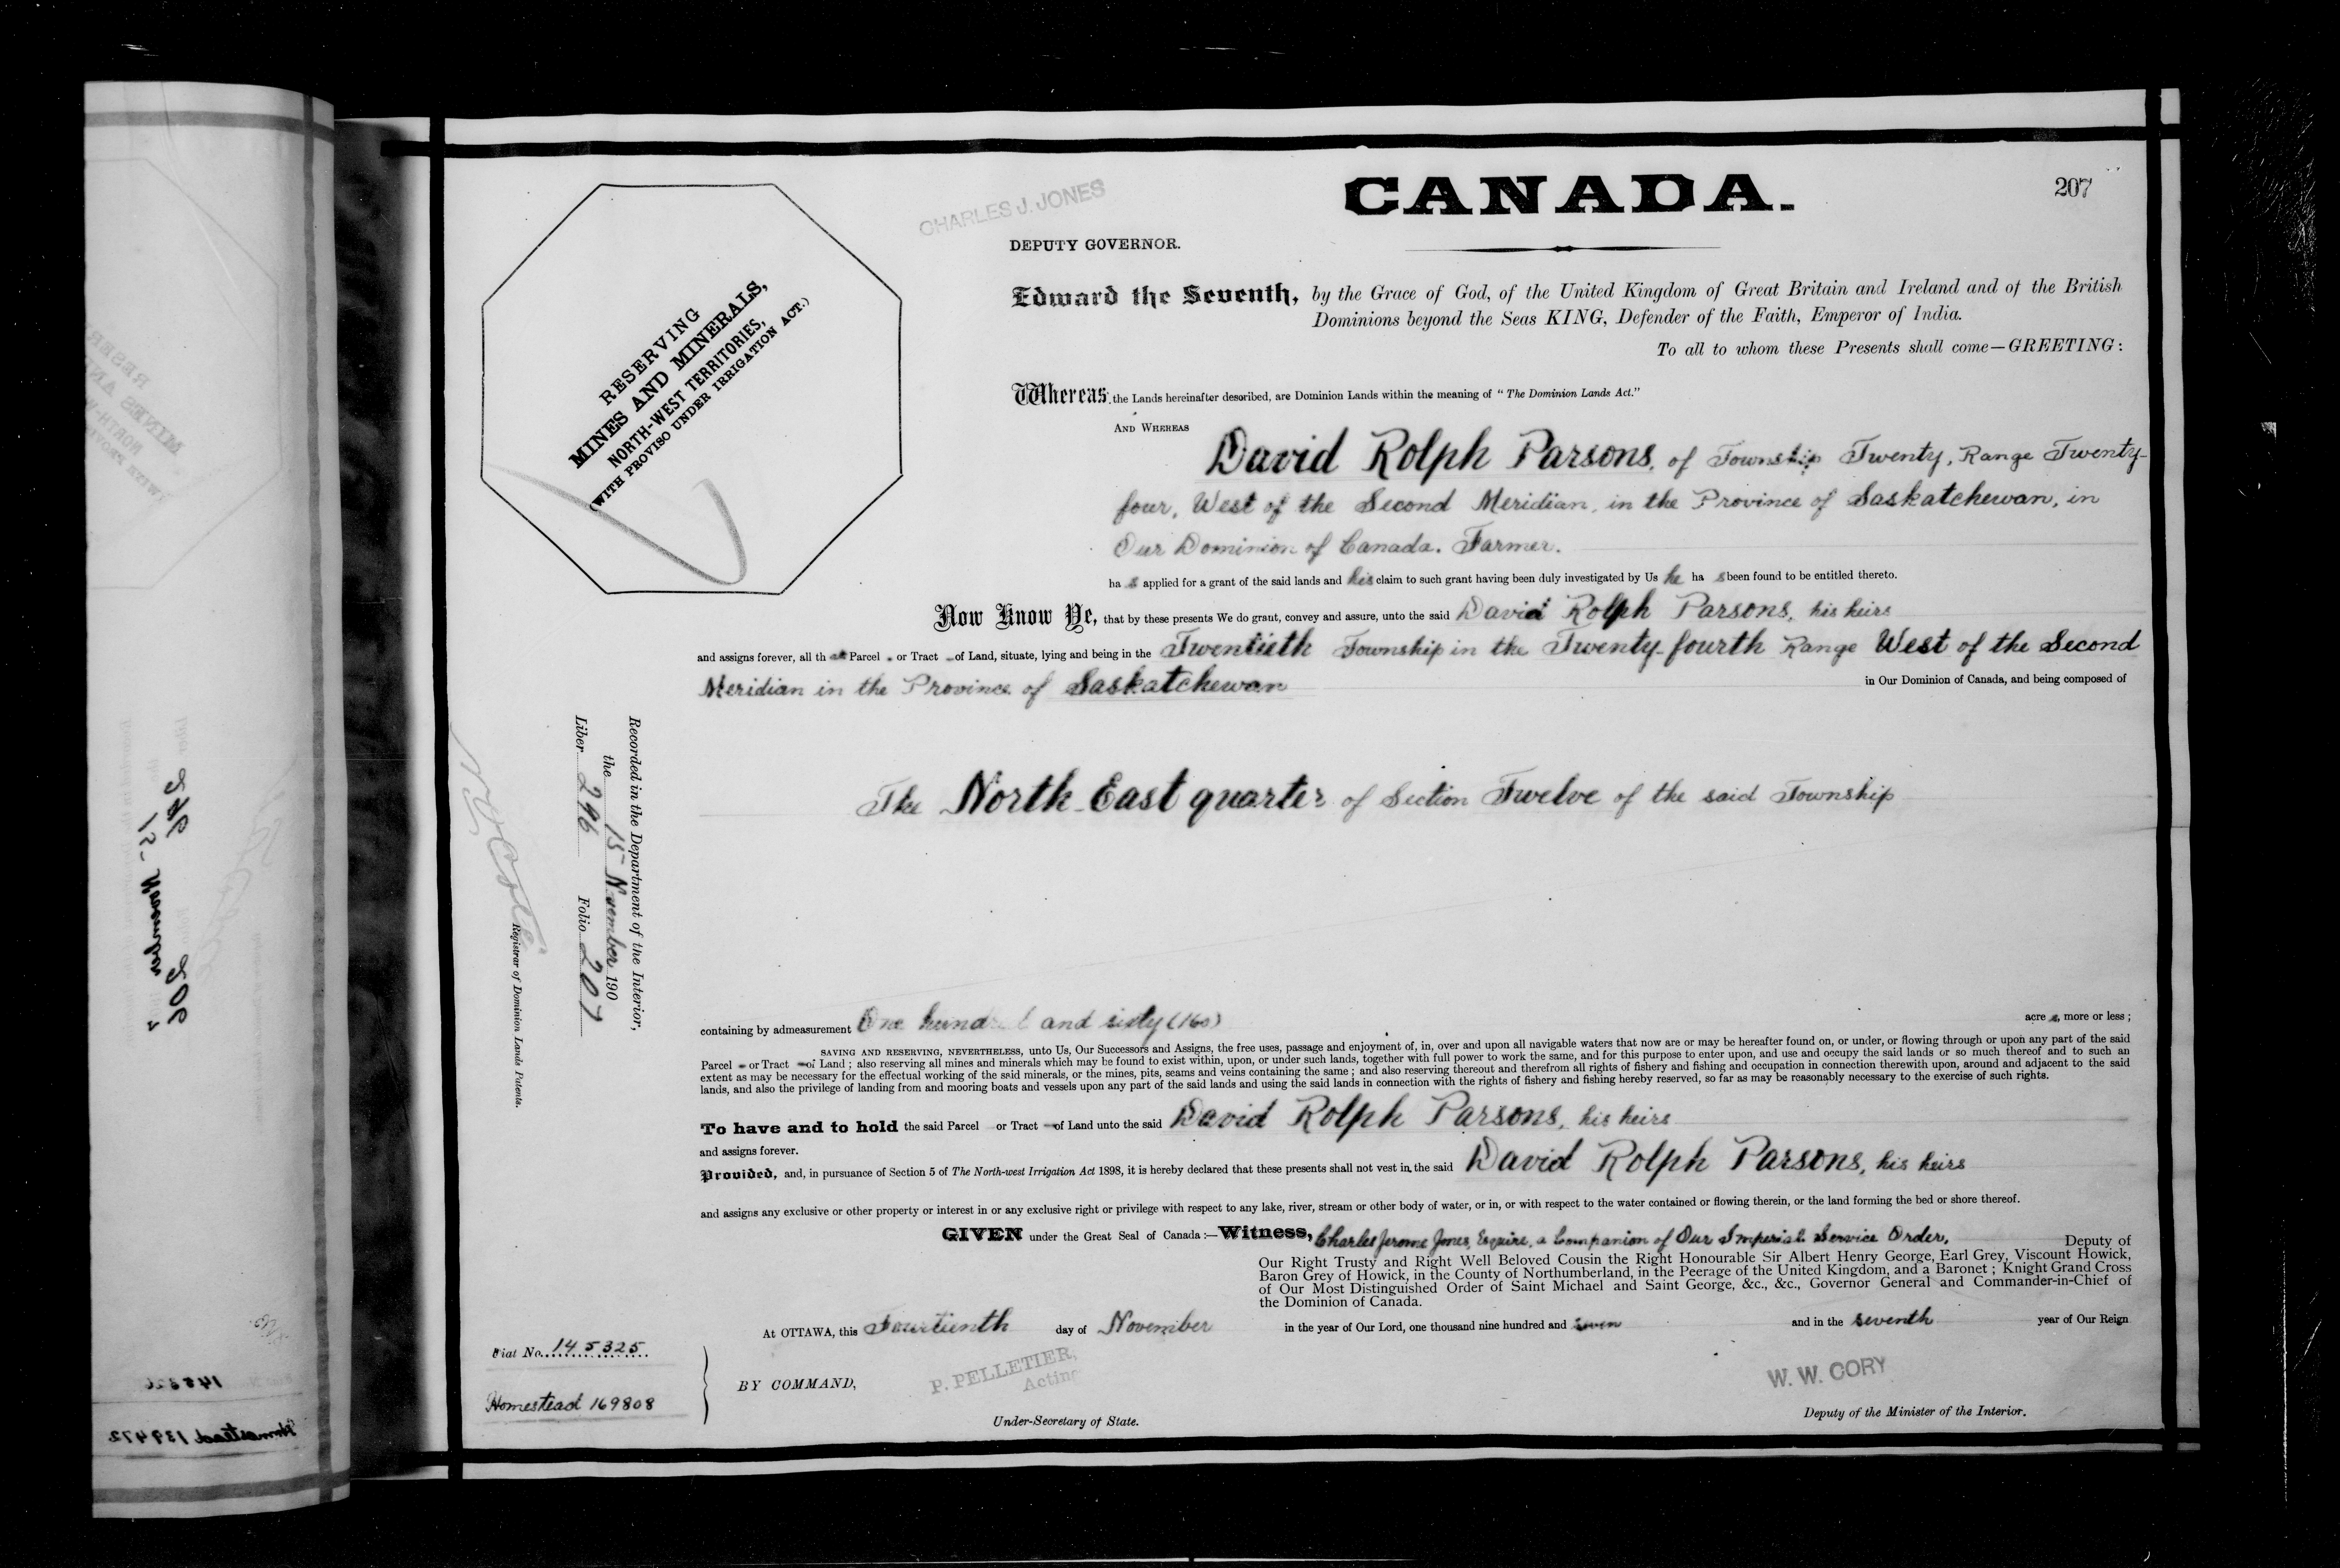 CANADA.
207
CHARLES J. JONES
DEPUTY GOVERNOR.
RESERVING
MINES AND MINERALS,
NORTH-WEST TERRITORIES,
(WITH PROVISO UNDER IRRIGATION ACT.)
Edward the Seventh, by the Grace of God, of the United Kingdom of Great Britain and Ireland and of the British
Dominions beyond the Seas KING, Defender of the Faith, Emperor of India.
To all to whom these Presents shall come—GREETING:
Whereas, the Lands hereinafter described, are Dominion Lands within the meaning of "The Dominion Lands Act."
AND WHEREAS
David Rolph Parsons, of Township Twenty, Range Twenty-
four, West of the Second Meridian, in the Province of Saskatchewan, in
Our Dominion of Canada. Farmer.
ha s applied for a grant of the said lands and his claim to such grant having been duly investigated by Us he ha s been found to be entitled thereto.
Now Know Ye, that by these presents We do grant, convey and assure, unto the said David Rolph Parsons, his heirs
and assigns forever, all th at Parcel or Tract of Land, situate, lying and being in the Twentieth Township in the Twenty-fourth Range West of the Second
Meridian in the Province of Saskatchewan in Our Dominion of Canada, and being composed of
The North East quarter of Section Twelve of the said Township
Recorded in the Department of the Interior,
the 15 November 190
Liber 296 Folio 207
Registrar of Dominion Lands Patents.
containing by admeasurement One hundred and sixty (160) acre s, more or less ;
SAVING AND RESERVING, NEVERTHELESS, unto Us, Our Successors and Assigns, the free uses, passage and enjoyment of, in, over and upon all navigable waters that now are or may be hereafter found on, or under, or flowing through or upon any part of the said
Parcel or Tract of Land ; also reserving all mines and minerals which may be found to exist within, upon, or under such lands, together with full power to work the same, and for this purpose to enter upon, and use and occupy the said lands or so much thereof and to such an
extent as may be necessary for the effectual working of the said minerals, or the mines, pits, seams and veins containing the same ; and also reserving thereout and therefrom all rights of fishery and fishing and occupation in connection therewith upon, around and adjacent to the said
lands, and also the privilege of landing from and mooring boats and vessels upon any part of the said lands and using the said lands in connection with the rights of fishery and fishing hereby reserved, so far as may be reasonably necessary to the exercise of such rights.
To have and to hold the said Parcel or Tract of Land unto the said David Rolph Parsons, his heirs
and assigns forever.
Provided, and, in pursuance of Section 5 of The North-west Irrigation Act 1898, it is hereby declared that these presents shall not vest in the said David Rolph Parsons, his heirs
and assigns any exclusive or other property or interest in or any exclusive right or privilege with respect to any lake, river, stream or other body of water, or in, or with respect to the water contained or flowing therein, or the land forming the bed or shore thereof.
GIVEN under the Great Seal of Canada :—Witness, Charles Jerome Jones, Esquire, a Companion of Our Imperial Service Order, Deputy of
Our Right Trusty and Right Well Beloved Cousin the Right Honourable Sir Albert Henry George, Earl Grey, Viscount Howick,
Baron Grey of Howick, in the County of Northumberland, in the Peerage of the United Kingdom, and a Baronet ; Knight Grand Cross
of Our Most Distinguished Order of Saint Michael and Saint George, &c., &c., Governor General and Commander-in-Chief of
the Dominion of Canada.
At OTTAWA, this Fourteenth day of November in the year of Our Lord, one thousand nine hundred and seven and in the seventh year of Our Reign
Fiat No. 145325
Homestead 169808
BY COMMAND,
P. PELLETIER,
Acting
Under-Secretary of State.
W. W. CORY
Deputy of the Minister of the Interior.